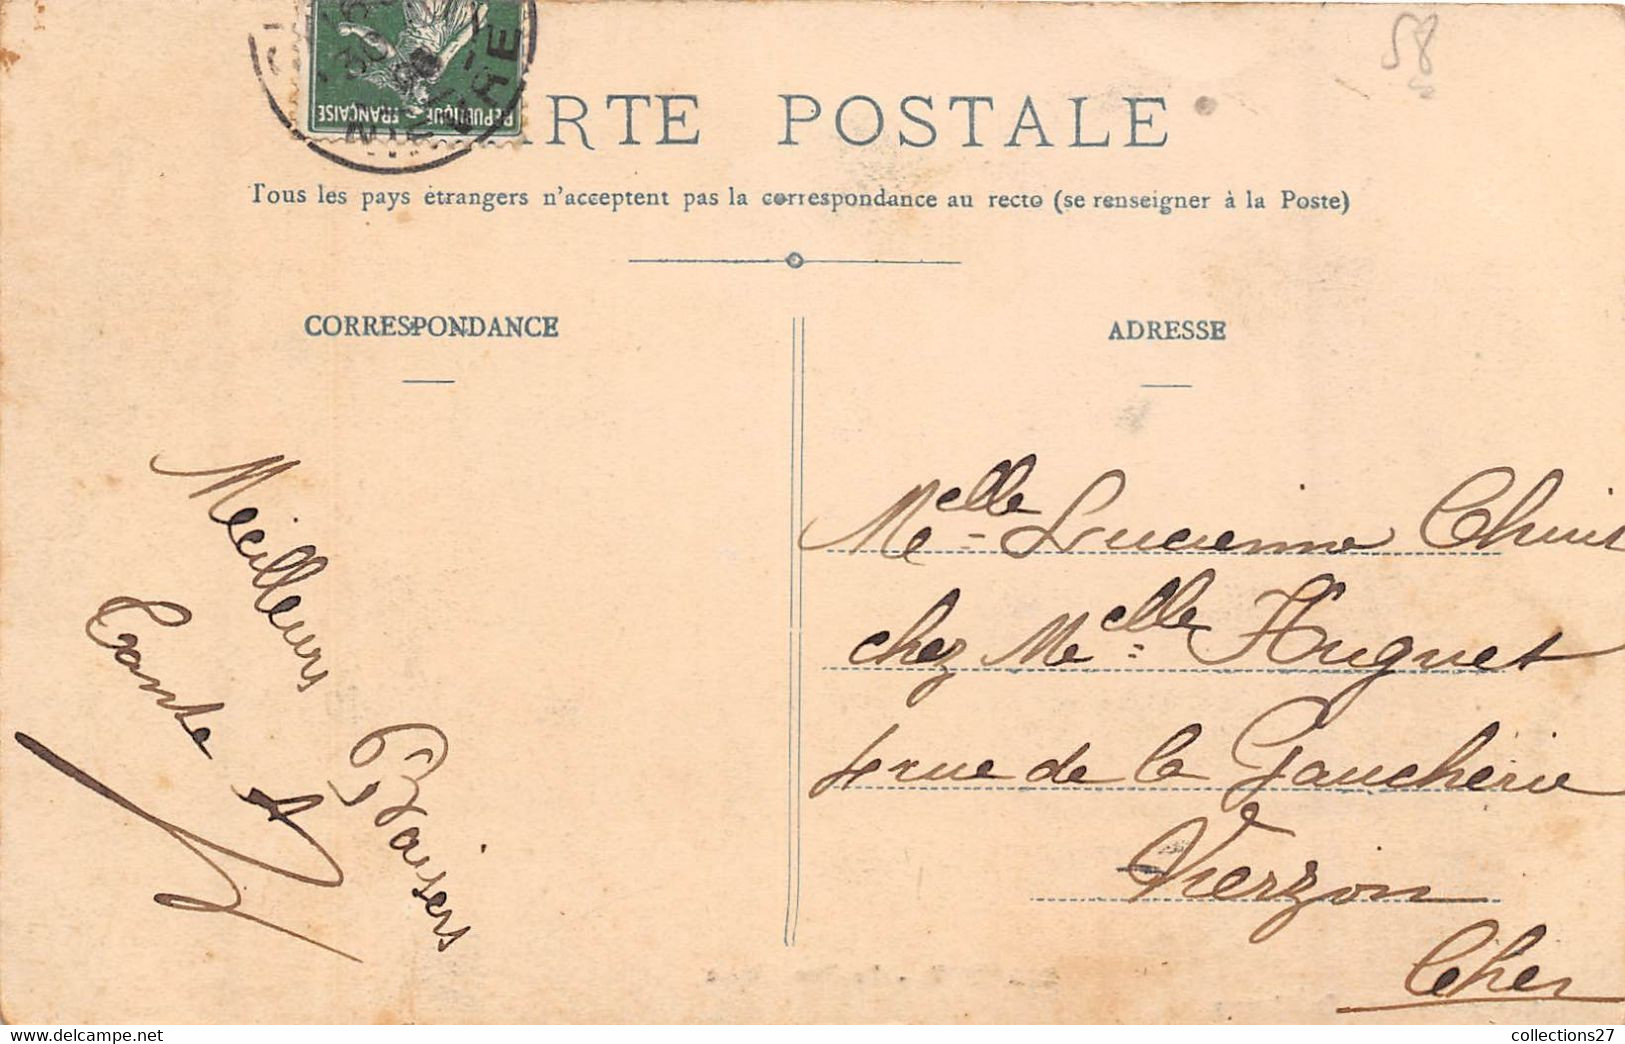 58
RÉPUBLIQUE FRANÇAISE
NIÈVRE
30
RTE POSTALE
Tous les pays étrangers n'acceptent pas la correspondance au recto (se renseigner à la Poste)
CORRESPONDANCE
ADRESSE
Meilleurs Baisers
Tante
Melle Lucienne
chez Melle Huguet
rue de la Gaucherie
Vierzon
Cher
collections27